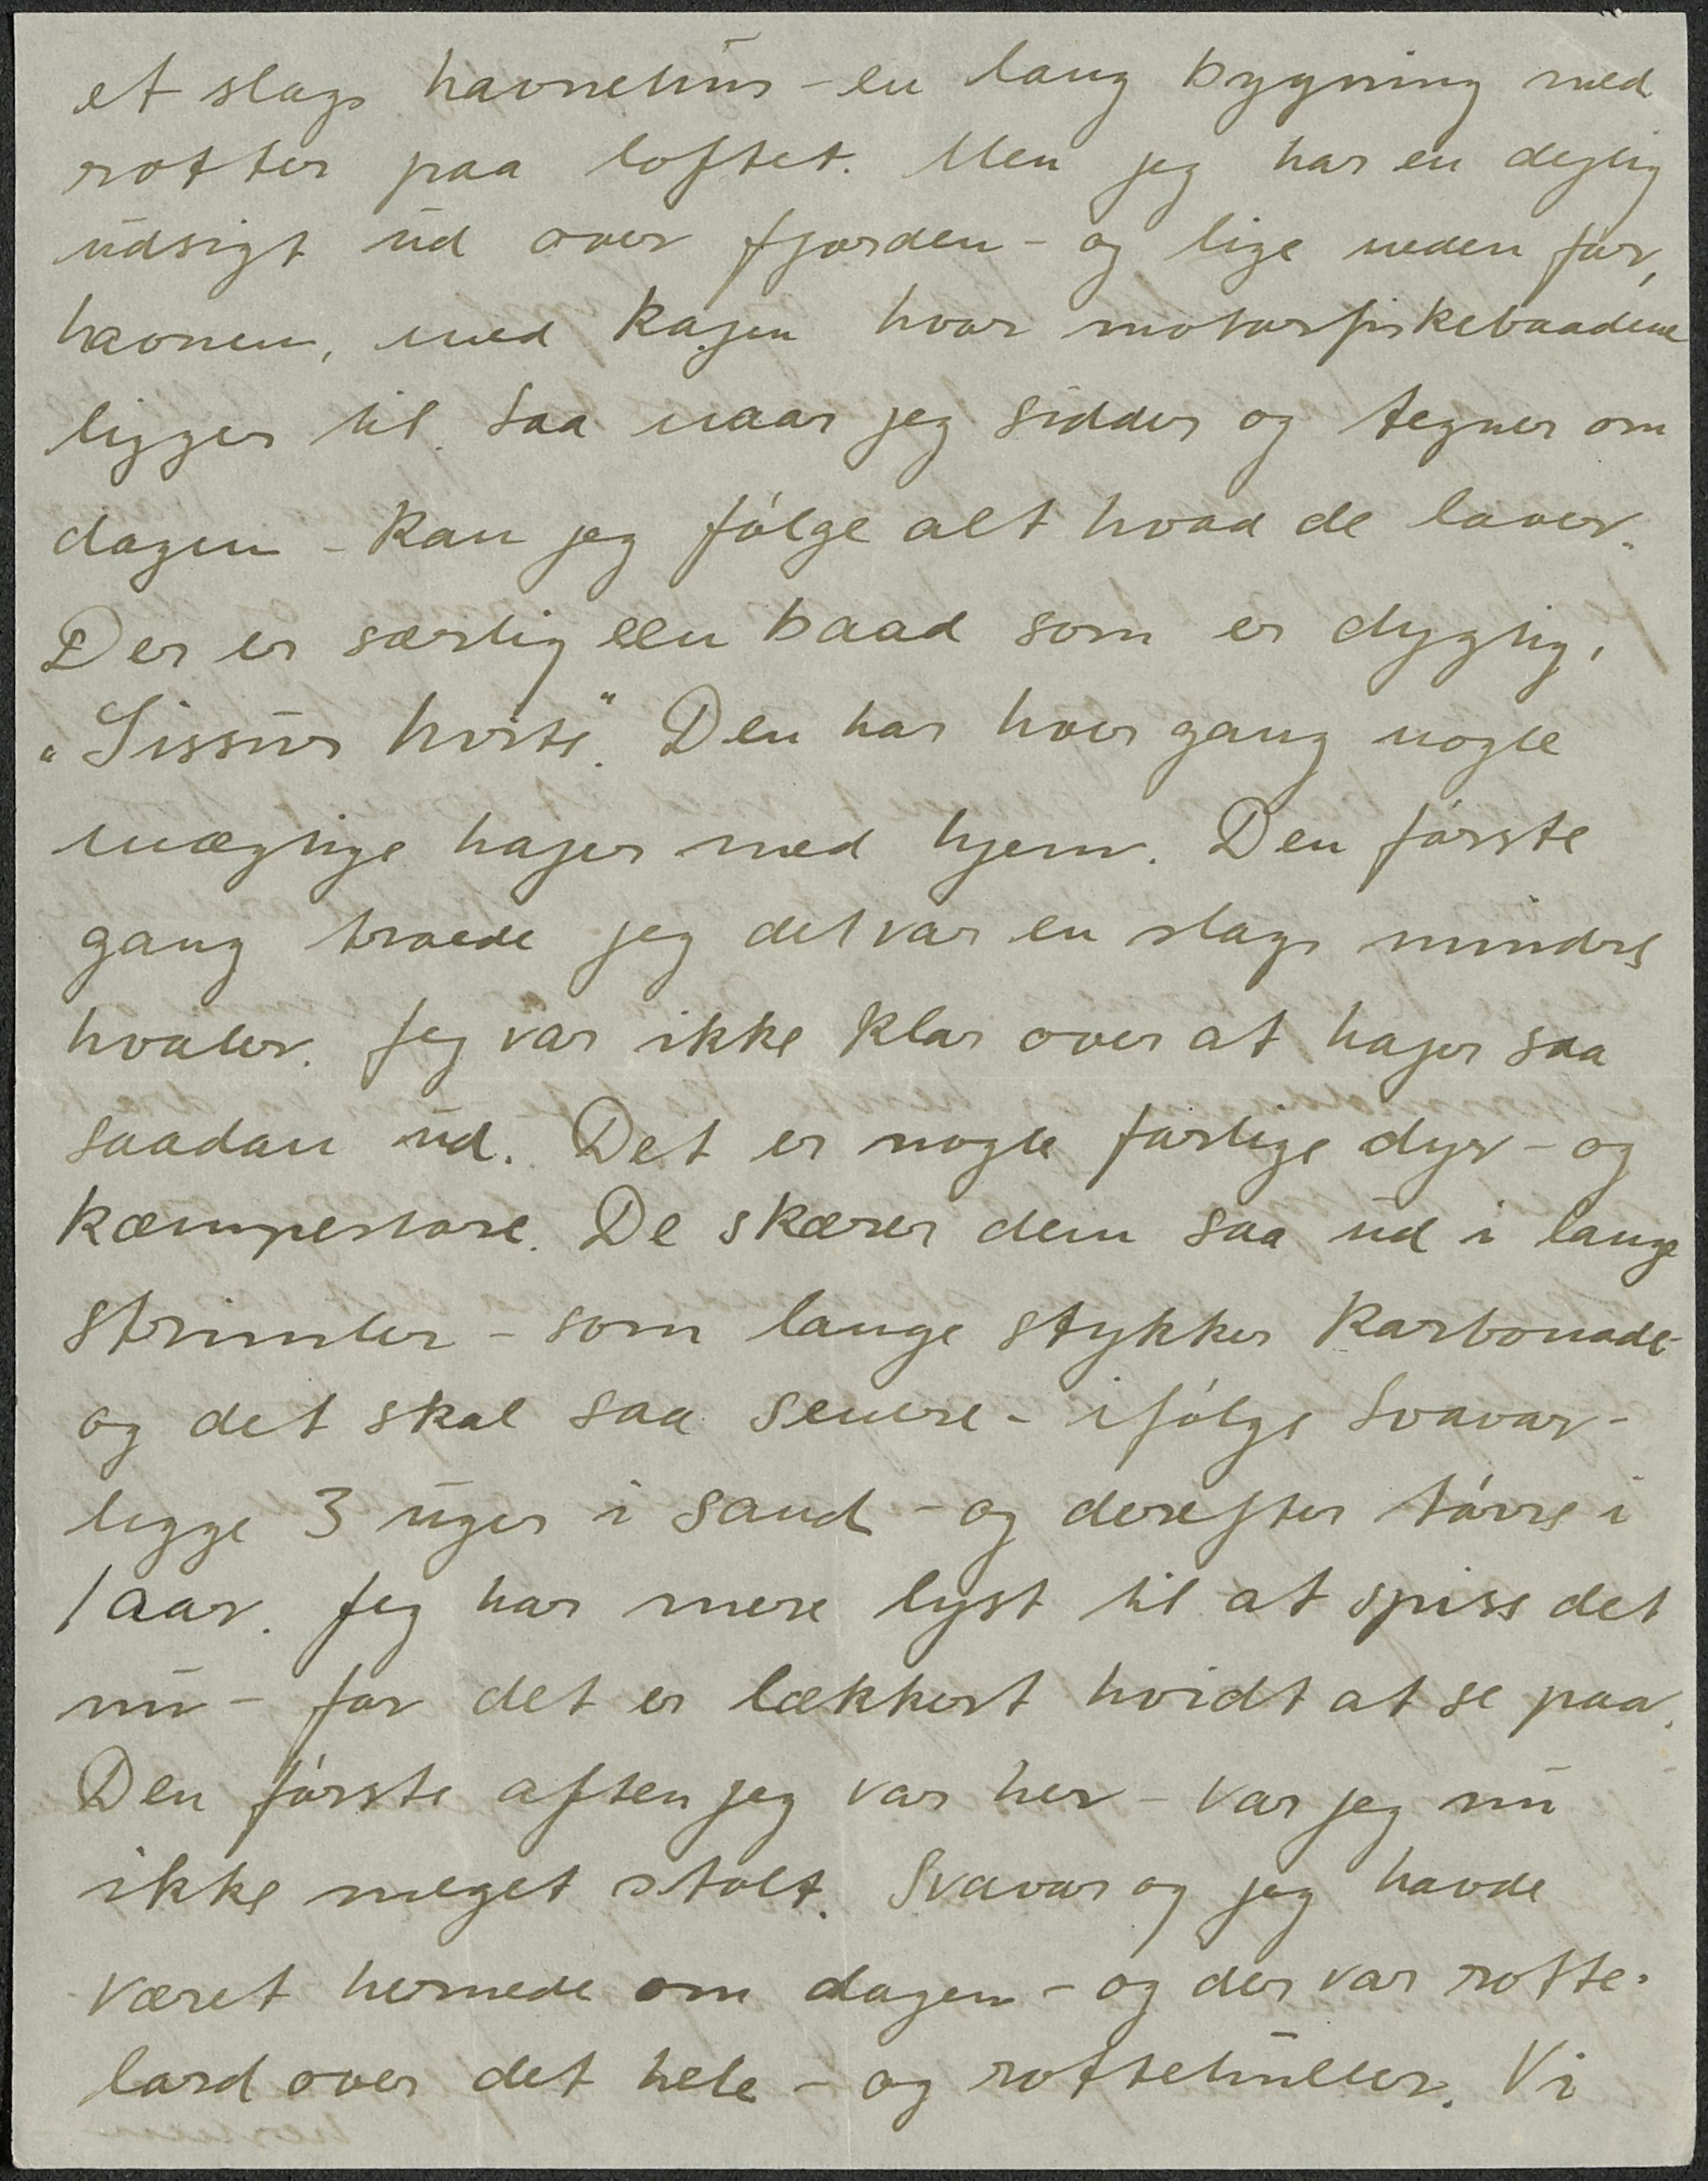 et slags havnehus - en lang bygning med
rotter paa loftet. Men jeg har en dejlig
udsigt ud over fjorden - og lige neden for,
havnen, med kajen hvor motorfiskebaadene
ligger til. Saa naar jeg sidder og tegner om
dagen - kan jeg følge alt hvad de laver.
Der er særlig een baad som er dygtig,
"Gissur hvite". Den har hver gang nogle
mægtige hajer med hjem. Den første
gang troede jeg det var en slags mindre
hvaler. Jeg var ikke klar over at hajer saa
saadan ud. Det er nogle farlige dyr - og
kæmpestore. De skærer dem saa ud i lange
strimler - som lange stykker karbonade
og det skal saa senere - ifølge Svavar -
ligge 3 uger i sand - og derefter tørre i
1 aar. Jeg har mere lyst til at spise det
nu - for det er lækkert hvidt at se paa.
Den første aften jeg var her - var jeg nu
ikke meget stolt. Svavar og jeg havde
været hernede om dagen - og der var rotte-
lord over det hele - og rottehuller. Vi